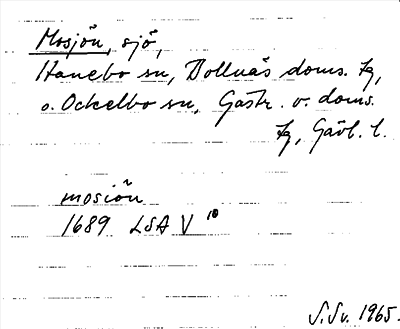 Mosjön, sjö,
Hanebo sn, Bollnäs doms. tg,
o. Ockelbo sn, Gästr. v. doms.
tg, Gävl. l.
mosiön
1689 LSA V 10
S.Sv. 1965.